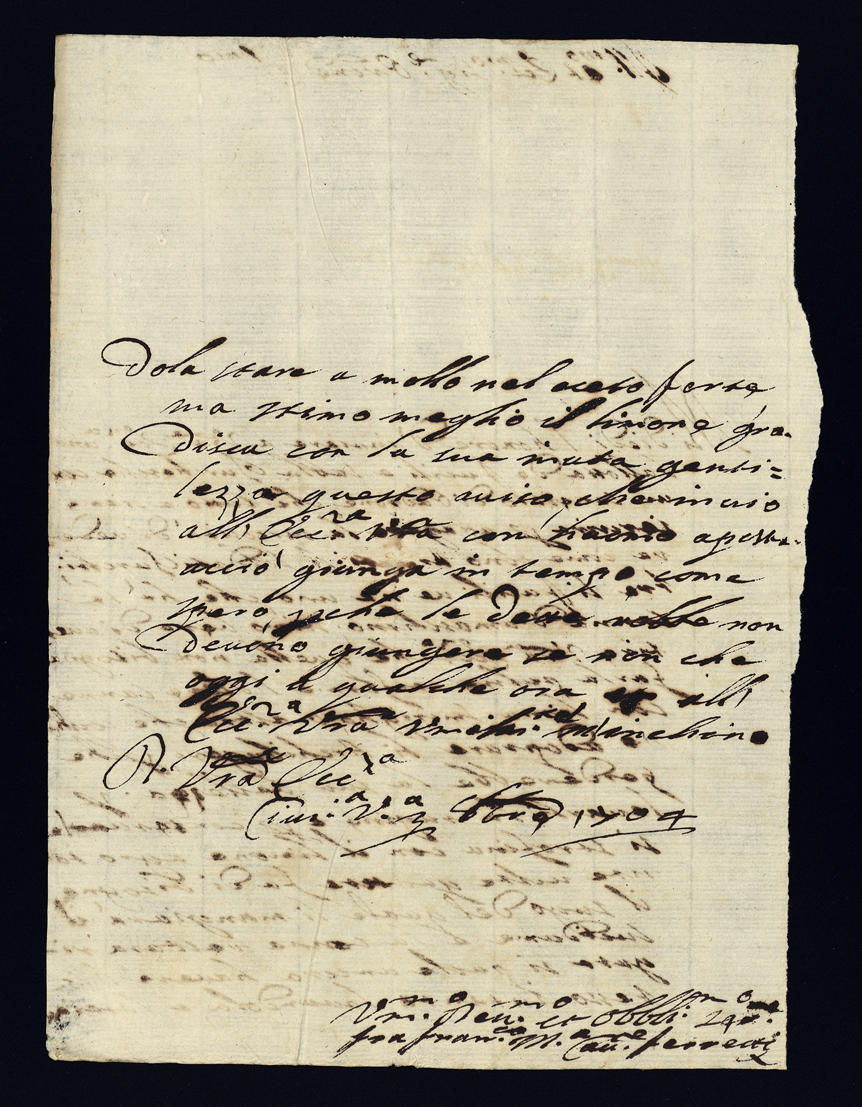 dola stare a mollo nel aceto forte
ma stimo meglio il limone gra-
disca con la sua innata genti=
lezza questo aviso, che invio
all' Ecc.za Vra con apposta
acciò giunga in tempo come
spero, pche le dette robbe non
devono giungere se non che
oggi a qualche ora et all'
Ecc.za Vra m'inchino
D Vra Ecc.za
Civi.a V.a 8bre 1704
Vm.mo Dev.mo et Obblig.mo
fra Fran.co M.a Cau.re Ferretti